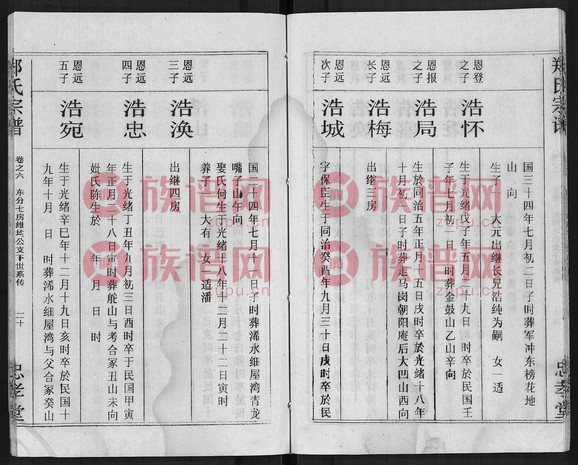 郑氏宗谱
忠孝堂
国三十四年七月初二日子时葬军冲东榜花地
山向
恩登
之子
浩怀
生于光绪戊子年五月二十九日 时卒於民国壬
子年七月初一日 时葬金鼓山乙山辛向
生子 大元出继长兄浩纯为嗣 女一适
恩报
之子
浩局
生於同治五年正月初五日戌时卒於光绪十八年
十月初三日子时葬走马岗朝阳庵后大凹山西向
恩远
长子
浩梅
出继三房
恩远
次子
浩城
字保臣生于同治癸酉年九月三十日戌时卒於民
国二十四年七月十日子时葬浠水细屋湾青龙
嘴子山午向
娶何氏生于光绪十八年十二月二十二日寅时
养子一 大有 女一 适潘
恩远
三子
浩涣
出继四房
恩远
四子
浩忠
生于光绪丁丑年九月初三日酉时卒于民国甲寅
年正月二十八日寅时葬舵山与考合冢丑山未向
妣氏陈生於 年 月 日 时
恩远
五子
浩宛
生于光绪辛巳年十二月十九日亥时卒於民国十
九年十月 日 时葬浠水细屋湾与父合冢癸山
郑氏宗谱
卷之八 东分七房维均公支下世系传
二十
忠孝堂
族谱网
zupu.cn
族谱网
zupu.cn
族谱网
zupu.cn
族谱网
zupu.cn